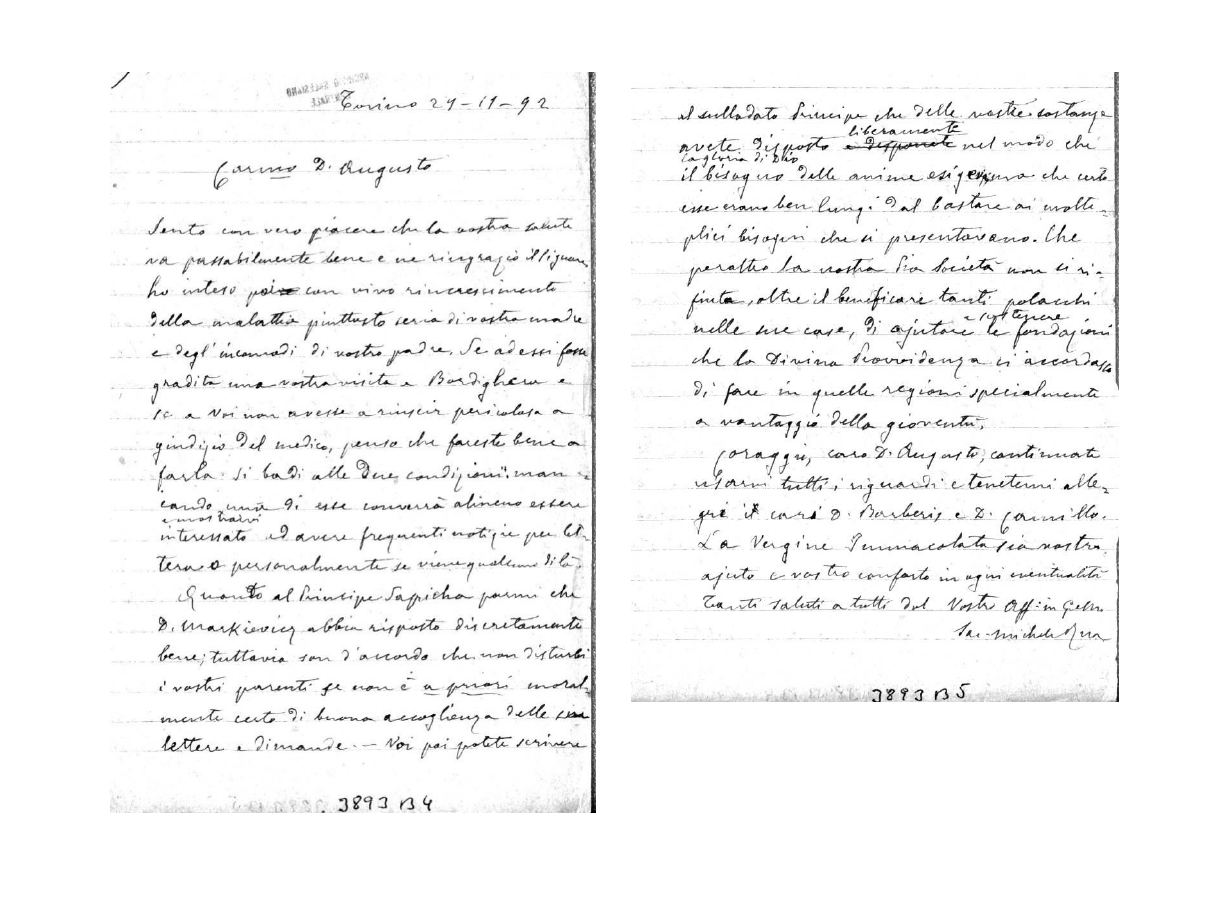 Torino 29-11-92
Carimo D. Augusto
Sento con vero piacere che la vostra salute
va passabilmente bene e ne ringrazio il Signore.
ho inteso poi con vivo rincrescimento
della malattia piuttosto seria di vostra madre
e degl'incomodi di vostro padre. Se ad essi fosse
gradita una vostra visita a Bordighera e
se a voi non avesse a riuscir pericolosa a
giudizio del medico, penso che fareste bene a
farla. Si badi alle due condizioni: man-
cando una di esse converrà almeno essere
e mostrarvi
interessato ed avere frequenti notizie per let-
tera o personalmente se viene qualcuno di là.
Quanto al Principe Sapieha parmi che
D. Markievicz abbia risposto discretamente
bene; tuttavia son d'accordo che non disturbi
i vostri parenti se non è a priori moral-
mente certo di buona accoglienza delle sue
lettere e dimande. — Voi poi potete scrivere
3893 B 4
al sullodato Principe che delle vostre sostanze
liberamente
avete disposto e disponete nel modo che
la gloria di Dio
il bisogno delle anime ma che certo
esse erano ben lungi dal bastare ai molte-
plici bisogni che si presentavano. Che
peraltro la nostra Pia Società non si ri-
fiuta, oltre il beneficare tanti polacchi
e sostenere
nelle sue case, di ajutare le fondazioni
che la Divina Provvidenza ci accordasse
di fare in quelle regioni specialmente
a vantaggio della gioventù.
Coraggio, caro D. Augusto; continuate
usarvi tutti i riguardi e tenetemi alle-
gri i cari D. Barberis e D. Camillo.
La Vergine Immacolata sia vostro
ajuto e vostro conforto in ogni eventualità
Tanti saluti a tutti dal Vostro Aff: in G. e M.
Sac. Michele Rua
3893 B 5